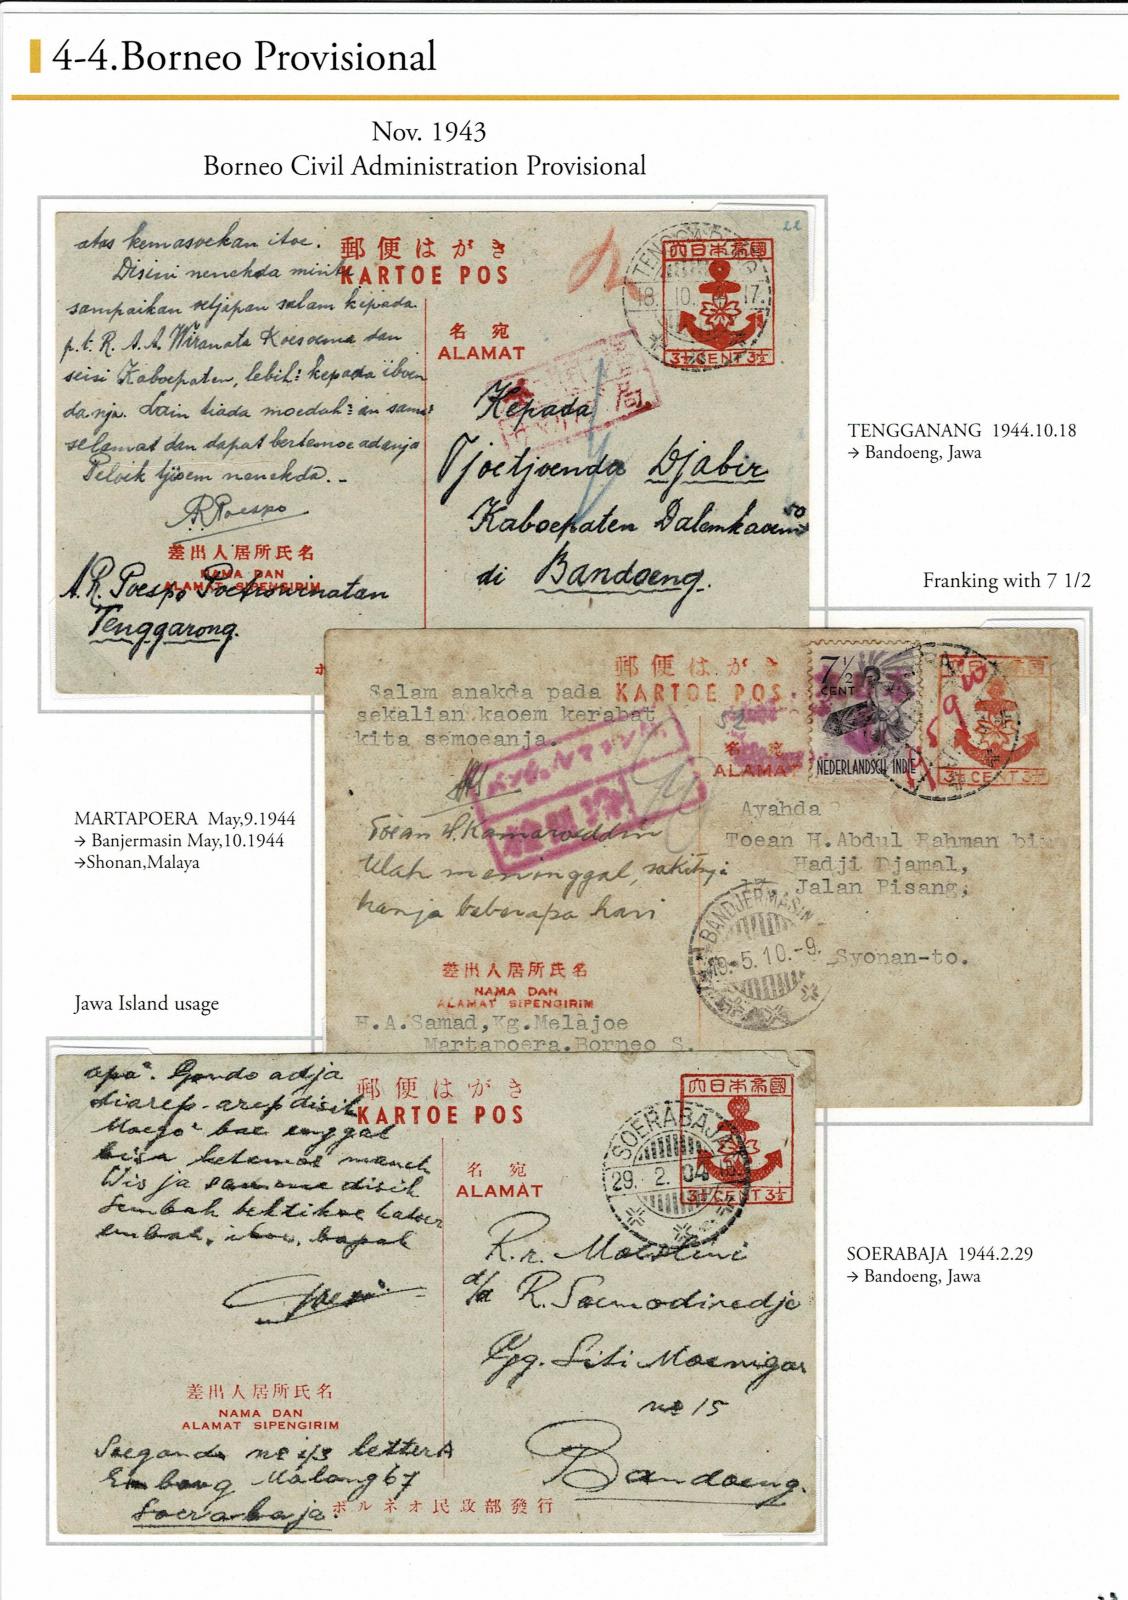 4-4.Borneo Provisional
Nov. 1943
Borneo Civil Administration Provisional
atas kemasoekan itoe.
Disini nenekda minta
sampaikan oetjapan salam kepada
p.t. R. A. A. Wiranata Koesoema dan
seisi Kaboepaten, lebih² kepada iboen
danja. Lain tiada moedah²an sama²
selamat dan dapat bertemoe adanja
Peloek tjioem nenekda.-
AR Poespo
差出人居所氏名
NAMA DAN
ALAMAT SIPENGIRIM
A.R. Poespo Poetrowinatan
Tenggarong.
郵便はがき
KARTOE POS
名宛
ALAMAT
大日本帝國
3½ CENT 3½
18. 10. 17.
22
Kepada
Tjoetjoenda Djabir
Kaboepaten Dalemkaoem
di Bandoeng.
TENGGANANG 1944.10.18
→ Bandoeng, Jawa
Franking with 7 1/2
郵便はがき
KARTOE POS
Salam anakda pada
sekalian kaoem kerabat
kita semoeanja.
Toean H. Kamaroeddin
telah meninggal, sakitnja
hanja beberapa hari
バンジェルマシン
差出人居所氏名
NAMA DAN
ALAMAT SIPENGIRIM
H.A.Samad,Kg.Melajoe
Martapoera.Borneo S.
52
名宛
ALAMAT
7½
CENT
NEDERLANDSCH INDIE
大日本帝國
3½ CENT 3½
Ayahda
Toean H.Abdul Rahman bin
Hadji Djamal,
Jalan Pisang,
Syonan-to.
BANDJERMASIN
19.-5.10.-9.
MARTAPOERA May,9.1944
→ Banjermasin May,10.1944
→Shonan,Malaya
Jawa Island usage
apa². Gondo adja
diarep-arep disik
Moego² bae enggal
bisa ketemoe maneh
Wis ja samene disik
Sembah bektikoe katoer
embah, iboe, bapak
差出人居所氏名
NAMA DAN
ALAMAT SIPENGIRIM
Soegondo no 43 letter A
Embong Malang 67
Soerabaja.
ボルネオ民政部發行
郵便はがき
KARTOE POS
名宛
ALAMAT
大日本帝國
3½ CENT 3½
SOERABAJA
29. 2. 04
R.r. Moestini
d/a R. Soemodiredjo
Gg. Siti Moenigar
no 15
Bandoeng.
SOERABAJA 1944.2.29
→ Bandoeng, Jawa